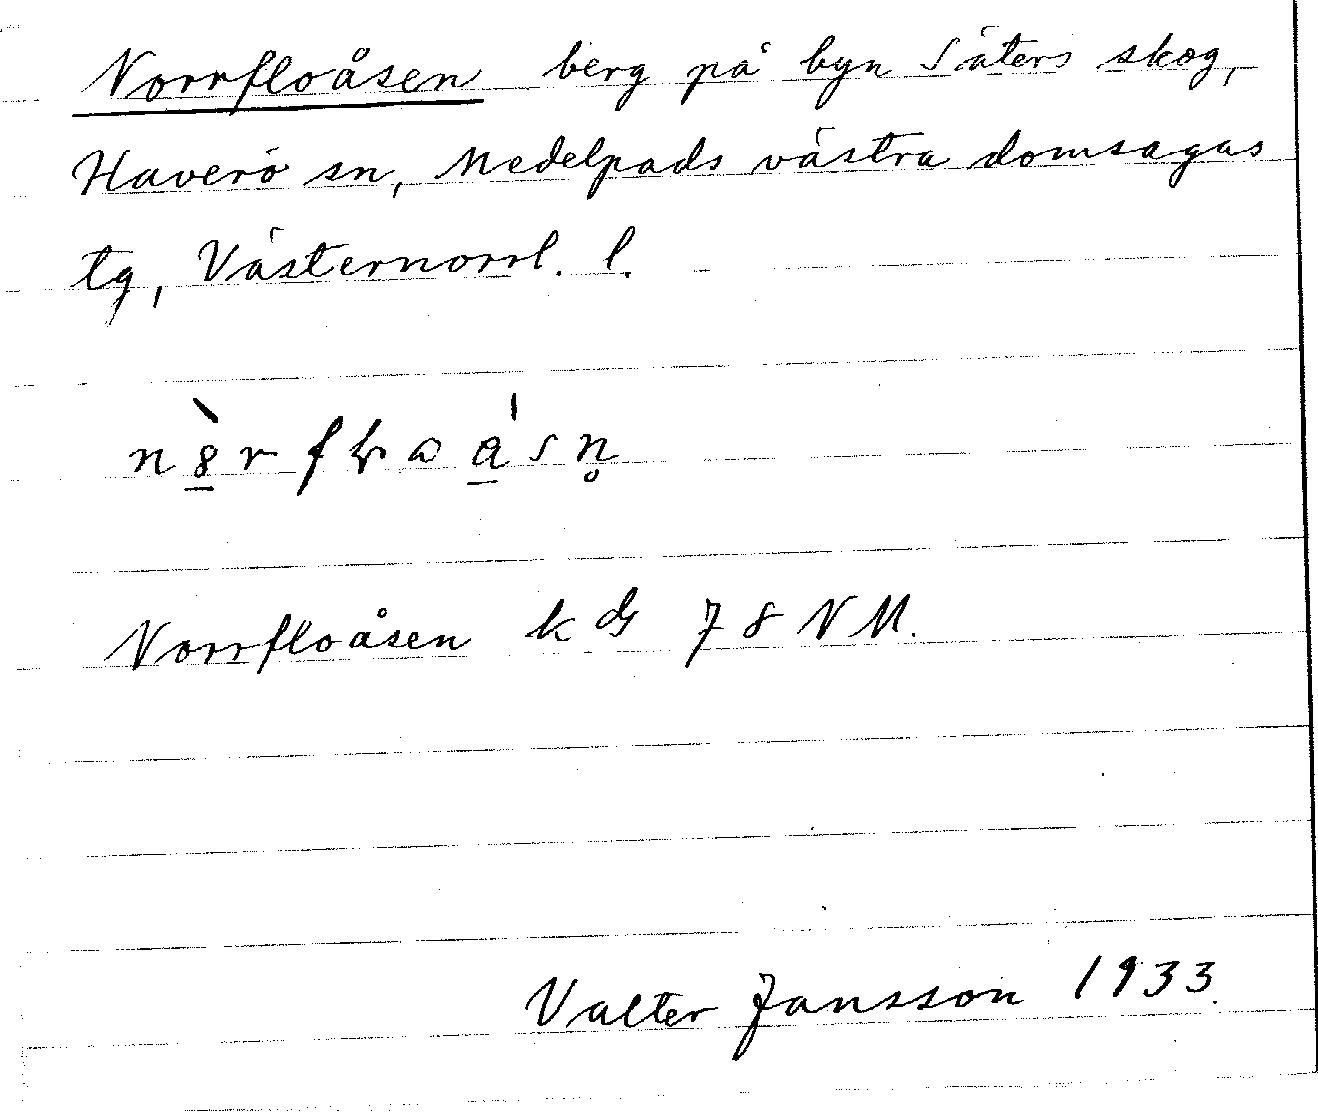 Norrfloåsen berg på byn Säters skog,
Haverö sn, Medelpads västra domsagas
tg, Västernorrl. l.
Norrfloåsen k ds 78 NV M.
Valter Jansson 1933.